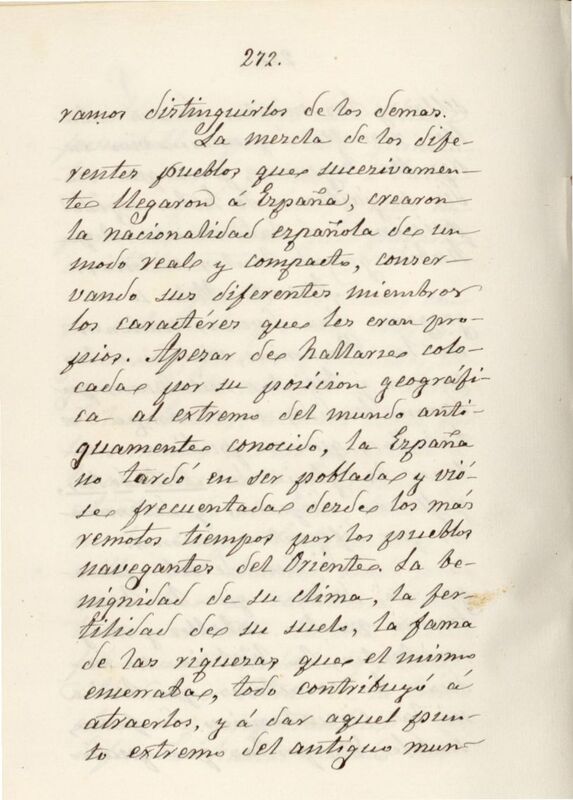 272.
ramos distinguirlos de los demas.
La mezcla de los dife-
rentes pueblos que sucesivamen-
te llegaron á España, crearon
la nacionalidad española de un
modo real y compacto, conser-
vando sus diferentes miembros
los caractéres que les eran pro-
pios. Apesar de hallarse colo-
cada por su posicion geográfi-
ca al extremo del mundo anti-
guamente conocido, la España
no tardó en ser poblada y vió-
se frecuentada desde los más
remotos tiempos por los pueblos
navegantes del Oriente. La be-
nignidad de su clima, la fer-
tilidad de su suelo, la fama
de las riquezas que el mismo
encerraba, todo contribuyó á
atraerlos, y á dar aquel pun-
to extremo del antiguo mun-